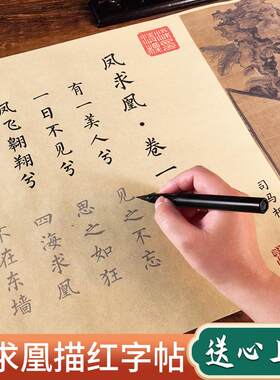 凤求凰·卷一
有一美人兮见之不忘
一日不见兮思之如狂
凤飞翱翔兮四海求凰
不在东墙
司马相
求凰描红字帖
送心上